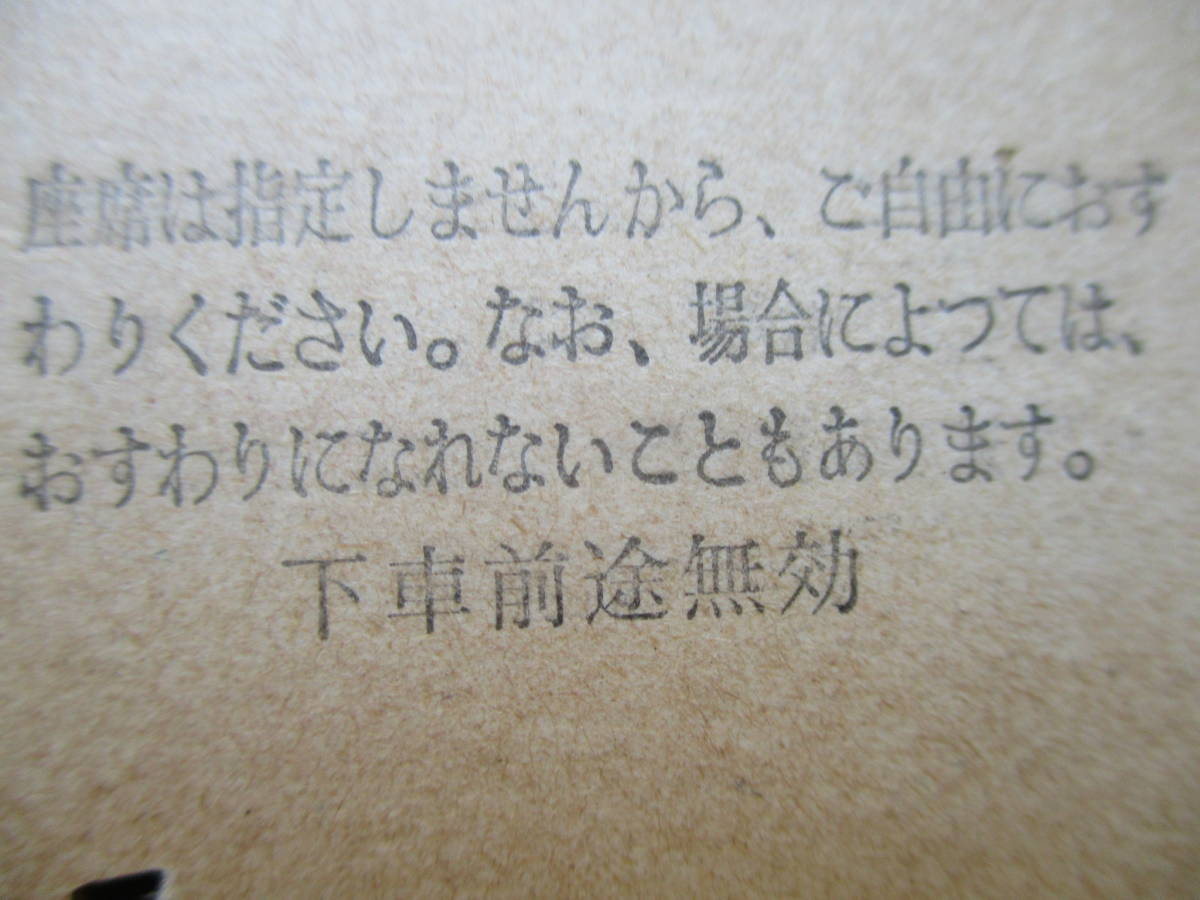 座席は指定しませんから、ご自由におす
わりください。なお、場合によつては、
おすわりになれないこともあります。
下車前途無効